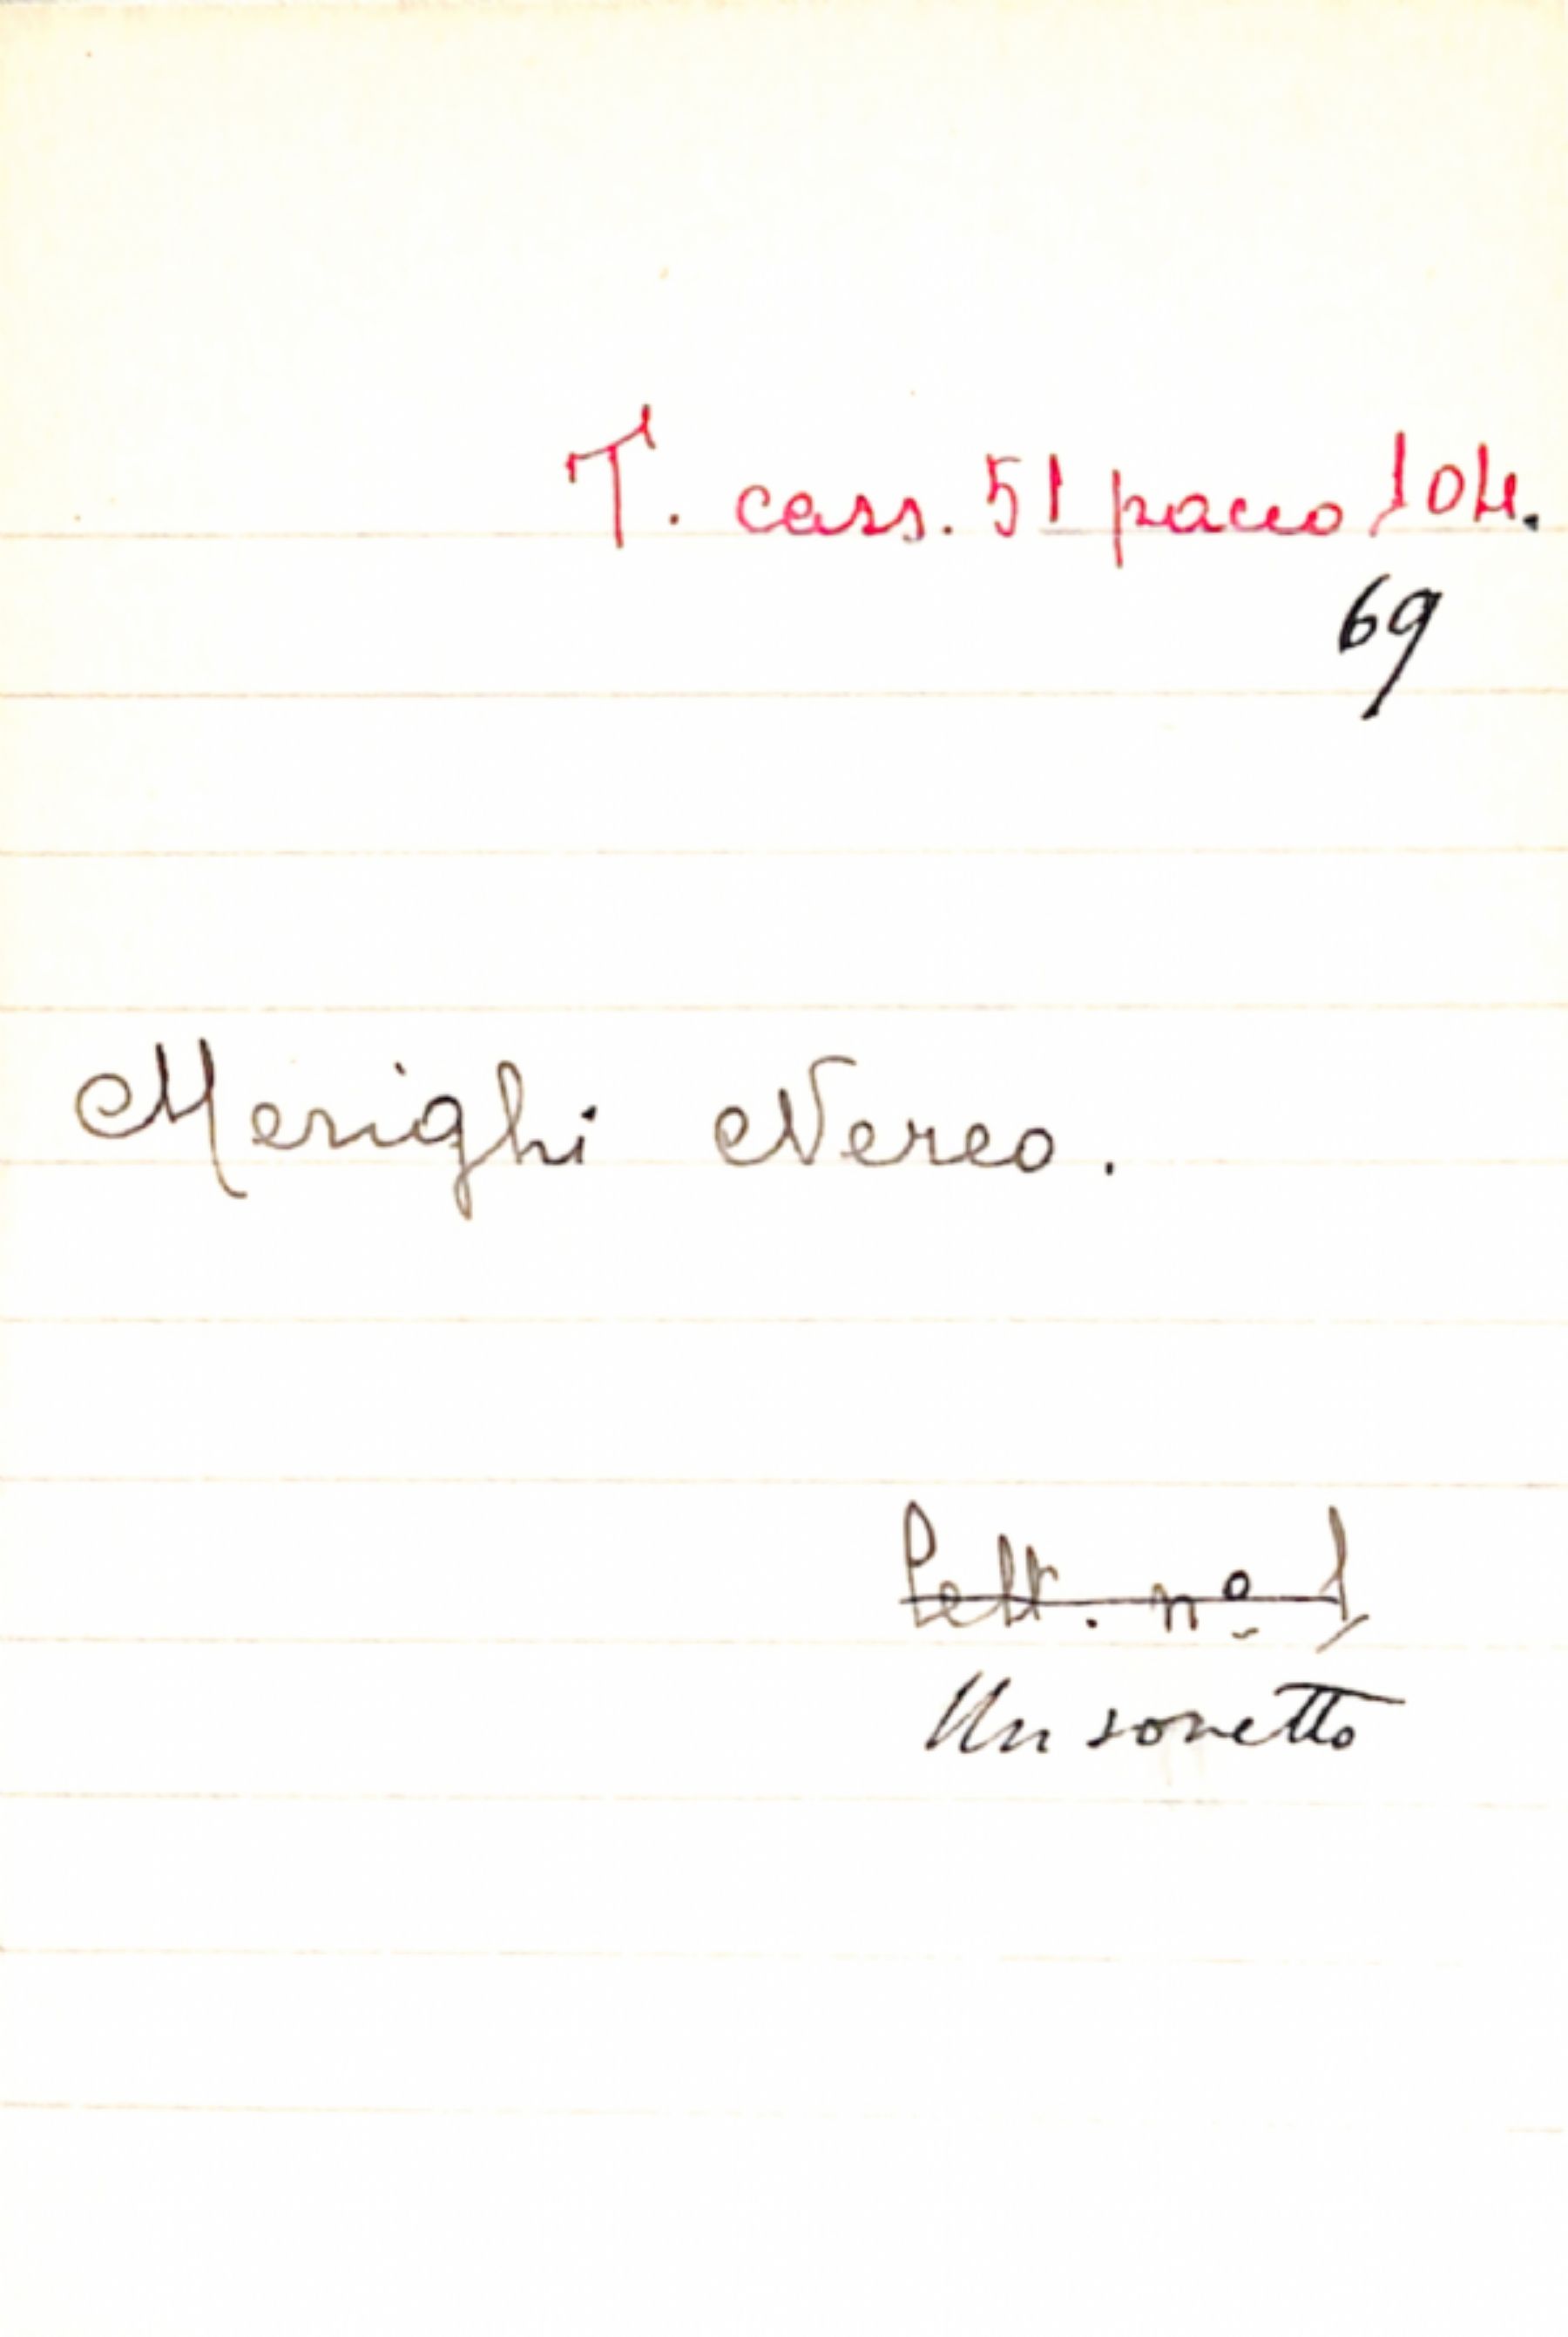 T. cass. 51 pacco 104.
69
Merighi Nereo.
Lett. nº 1
Un sonetto